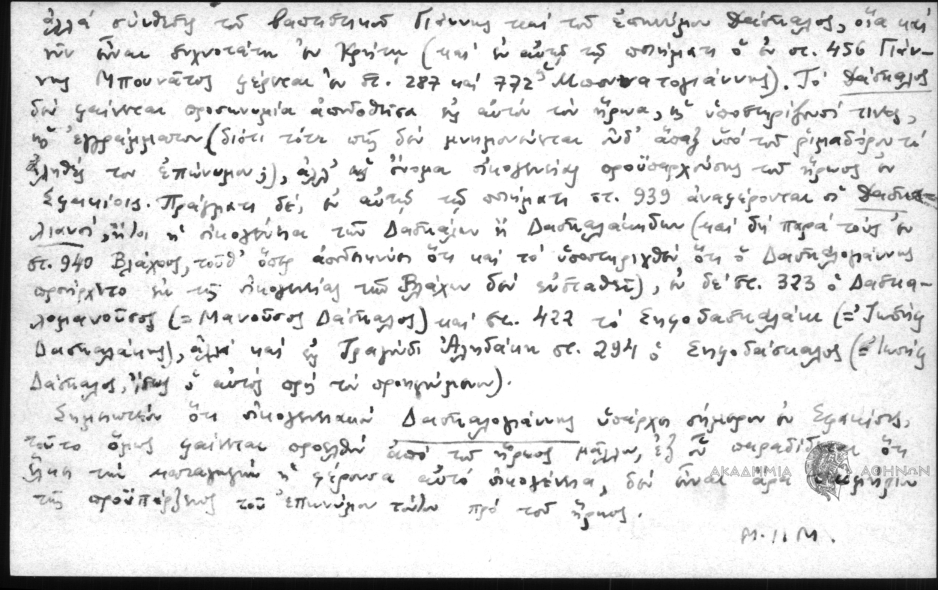 ἀλλὰ σύνθεσις τοῦ βαπτιστικοῦ Γιάννης καὶ τοῦ ἐπωνύμου Δάσκαλος, οἷα καὶ
νῦν εἶναι συχνοτάτη ἐν Κρήτῃ (καὶ ἐν αὐτῷ τῷ ποιήματι ὁ ἐν στ. 456 Γιάν-
νης Μπουνᾶτος φέρεται ἐν στ. 287 καὶ 772 Μπονατογιάννης). Τὸ Δάσκαλος
δὲν φαίνεται προσωνυμία ἀποδοθεῖσα εἰς αὐτὸν τὸν ἥρωα, ὡς ὑποστηρίζουσί τινες,
ὡς ἐγγράμματον (διότι τότε πῶς δὲν μνημονεύεται οὐδ' ἅπαξ ὑπὸ τοῦ ριμαδόρου τὸ
ἀληθές του ἐπώνυμον;), ἀλλ' ὡς ὄνομα οἰκογενείας προϋπαρχούσης τοῦ ἥρωος ἐν
Σφακίοις. Πράγματι δέ, ἐν αὐτῷ τῷ ποιήματι στ. 939 ἀναφέρονται οἱ Δασκα-
λιανοί, ἤτοι ἡ οἰκογένεια τῶν Δασκάλων ἢ Δασκαλάκηδων (καὶ δὴ παρὰ τοὺς ἐν
στ. 940 Βλάχους, τοῦθ' ὅπερ ἀποδεικνύει ὅτι καὶ τὸ ὑποστηριχθὲν ὅτι ὁ Δασκαλογιάννης
προήρχετο ἐκ τῆς οἰκογενείας τῶν Βλάχων δὲν εὐσταθεῖ), ἐν δὲ στ. 323 ὁ Δασκα-
λομανοῦσος (= Μανοῦσος Δάσκαλος) καὶ στ. 422 τὸ Σηφοδασκαλάκι (= Ἰωσὴφ
Δασκαλάκης), ἀλλὰ καὶ εἰς Τραγούδι Ἀληδάκη στ. 294 ὁ Σηφοδάσκαλος (= Ἰωσὴφ
Δάσκαλος, ἴσως ὁ αὐτὸς πρὸς τὸν προηγούμενον).
Σημειωτέον ὅτι οἰκογενειακὸν Δασκαλογιάννης ὑπάρχει σήμερον ἐν Σφακίοις,
τοῦτο ὅμως φαίνεται προελθὸν ἀπὸ τοῦ ἥρωος μᾶλλον, ἐξ οὗ παραδίδεται ὅτι
ἕλκει τὴν καταγωγὴν ἡ φέρουσα αὐτὸ οἰκογένεια, δὲν εἶναι ἄρα τεκμήριον
τῆς προϋπάρξεως τοῦ ἐπωνύμου τούτου πρὸ τοῦ ἥρωος.
Μ.Ι.Μ.
ΑΚΑΔΗΜΙΑ ΑΘΗΝΩΝ